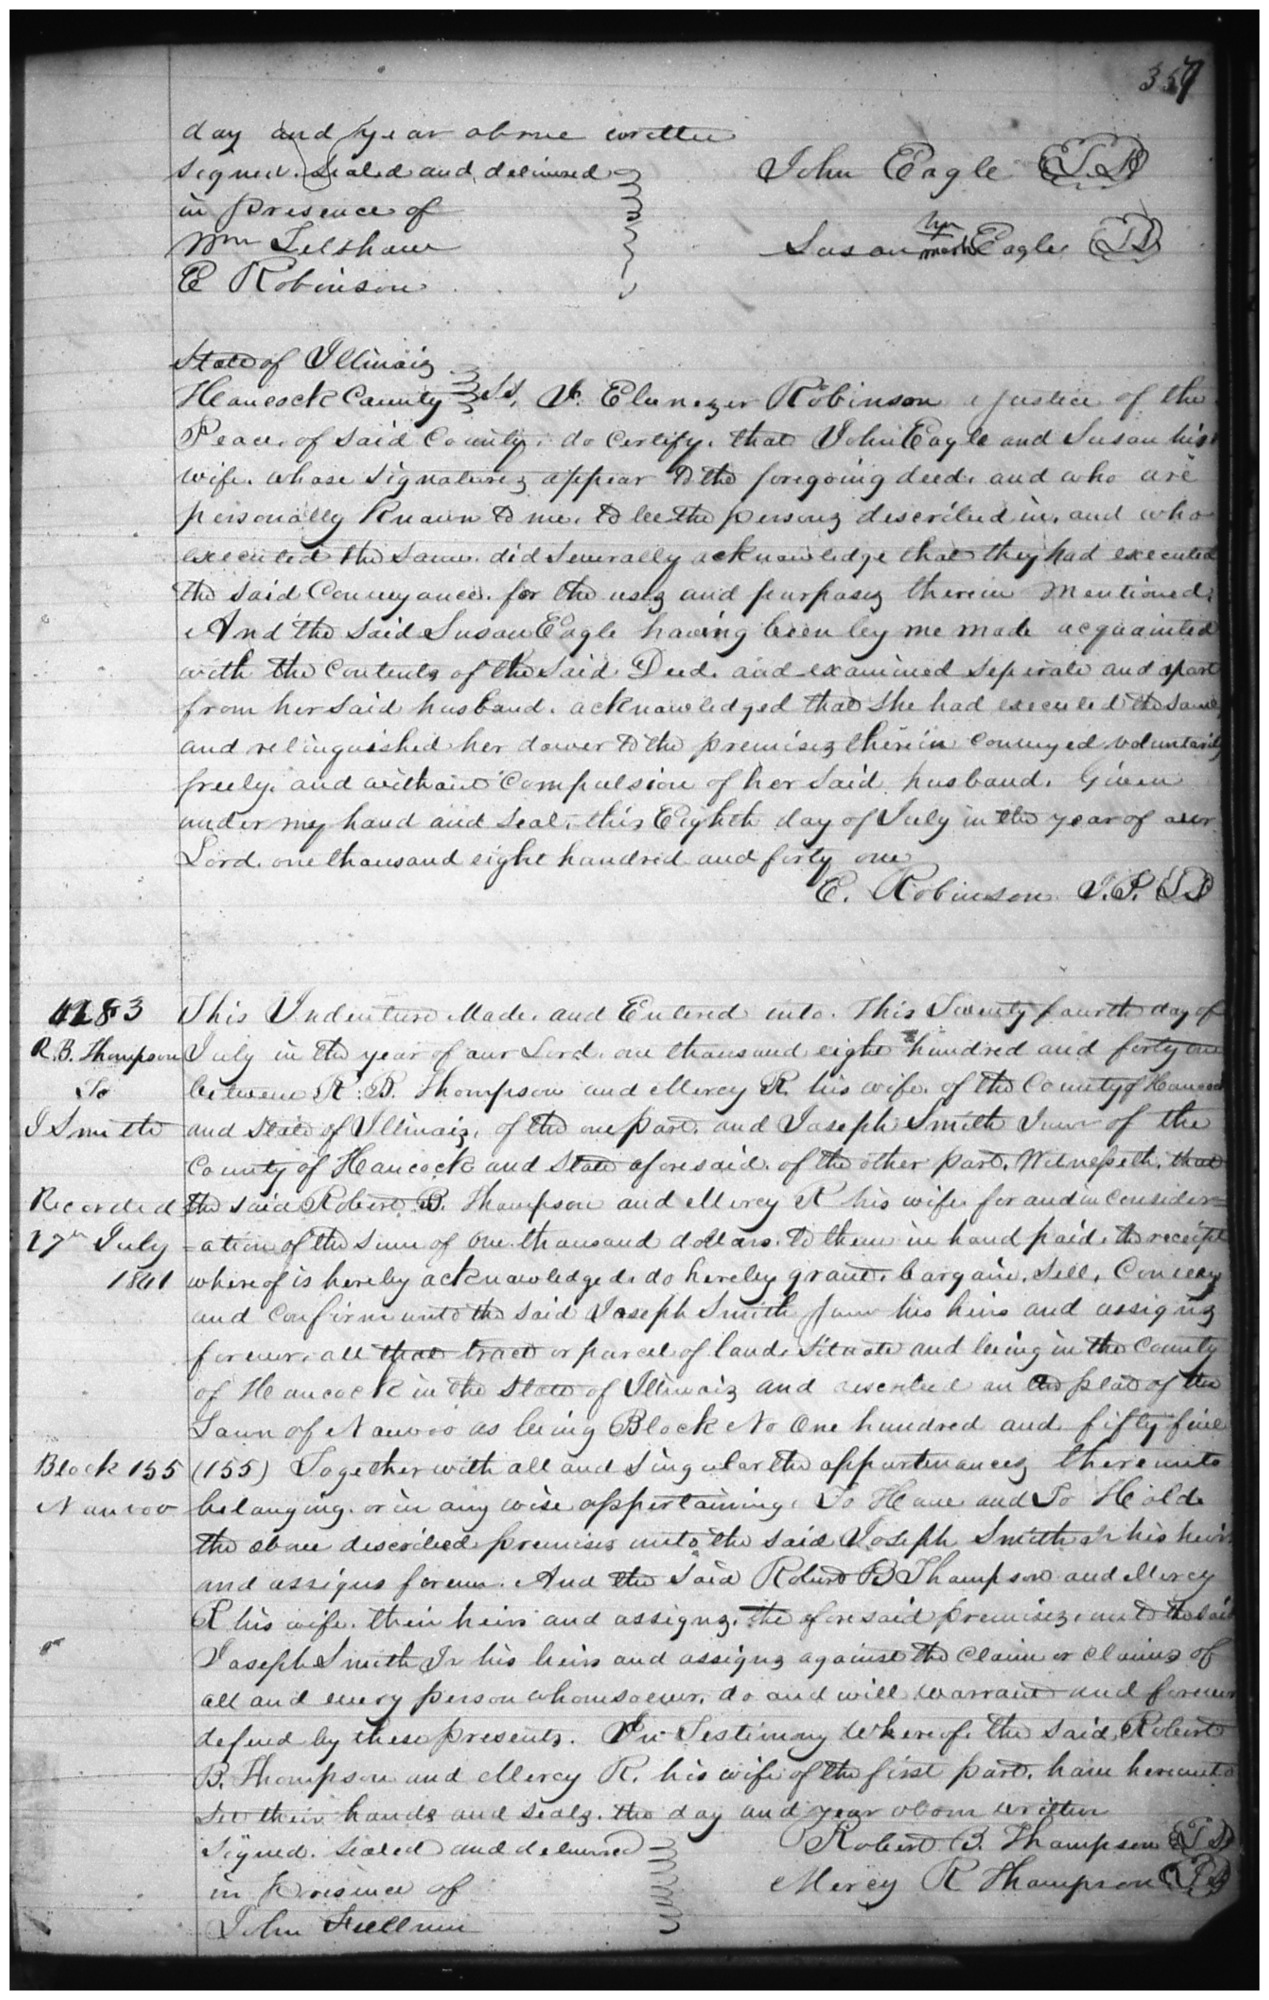 357
day and year above written
signed. Sealed and delivered
in presence of
Wm
E Robinson
John Eagle
her
Susan mark Eagle
State of Illinois
Hancock County Ss, I. Ebenezer Robinson a Justice of the
Peace, of said County, do Certify, that John Eagle and Susan his
wife, whose signatures appear to the foregoing deed, and who are
personally Known to me, to be the persons described in, and who
executed the same. did Severally acknowledge that they had executed
the said Conveyance. for the uses and purposes therein Mentioned.
And the said Susan Eagle having been by me made acquainted
with the Contents of the said Deed. and examined seperate and apart
from her said husband, acknowledged that she had executed the same,
and relinquished her dower to the premises therein Conveyed voluntarily
freely, and without Compulsion of her said husband. Given
under my hand and seal, this Eighth day of July in the year of our
Lord, one thousand eight hundred and forty one
E. Robinson J.P.
4283
R. B. Thompson
To
J Smith
Recorded
27th July
1841
Block 155
Nauvoo
This Indenture Made, and Entered into. this Twenty fourth day of
July in the year of our Lord, one thousand eight hundred and forty one
between R. B. Thompson and Mercy R. his wife, of the County of Hancock
and State of Illinois, of the one part, and Joseph Smith Junr of the
County of Hancock and State aforesaid, of the other part, Witnesseth, that
the said Robert B. Thompson and Mercy R his wife for and in consider=
=ation of the sum of one thousand dollars. to them in hand paid, the receipt
whereof is hereby acknowledged, do hereby grant, bargain, Sell, Convey
and Confirm unto the said Joseph Smith Junr his heirs and assigns
forever, all that tract or parcel of land, Situate and being in the County
of Hancock in the State of Illinois and described on the plat of the
Town of Nauvoo as being Block No One hundred and fifty five
(155) Together with all and singular the appurtenances, thereunto
belonging, or in any wise appertaining, To Have and To Hold.
the above described premises unto the said Joseph Smith Jr his heirs
and assigns forever. And the said Robert B Thompson and Mercy
R his wife, their heirs and assigns, the aforesaid premises, unto the said
Joseph Smith Jr his heirs and assigns against the claim or claims of
all and every person whomsoever, do and will warrant and forever
defend by these presents. In Testimony Whereof, the said Robert
B. Thompson and Mercy R. his wife of the first part, have hereunto
set their hands and seals, the day and year above written
Signed. Sealed and delivered
in Presence of
John
Robert B. Thompson
Mercy R Thompson